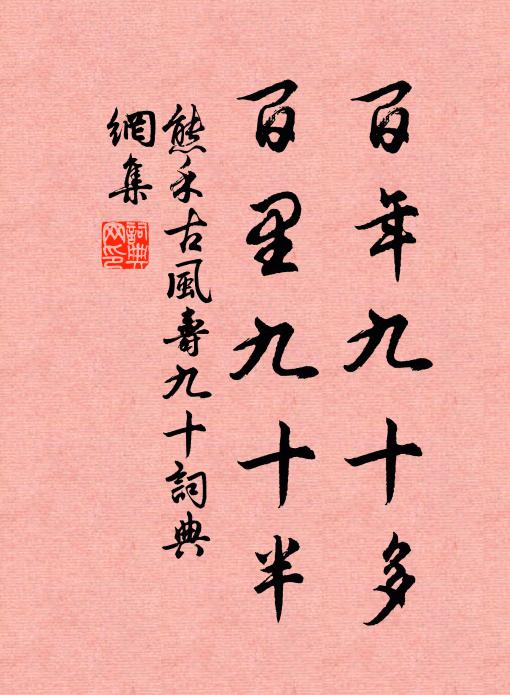 百年九十多
百里九十半
熊禾古風壽九十詞典
網集
詞典
网印